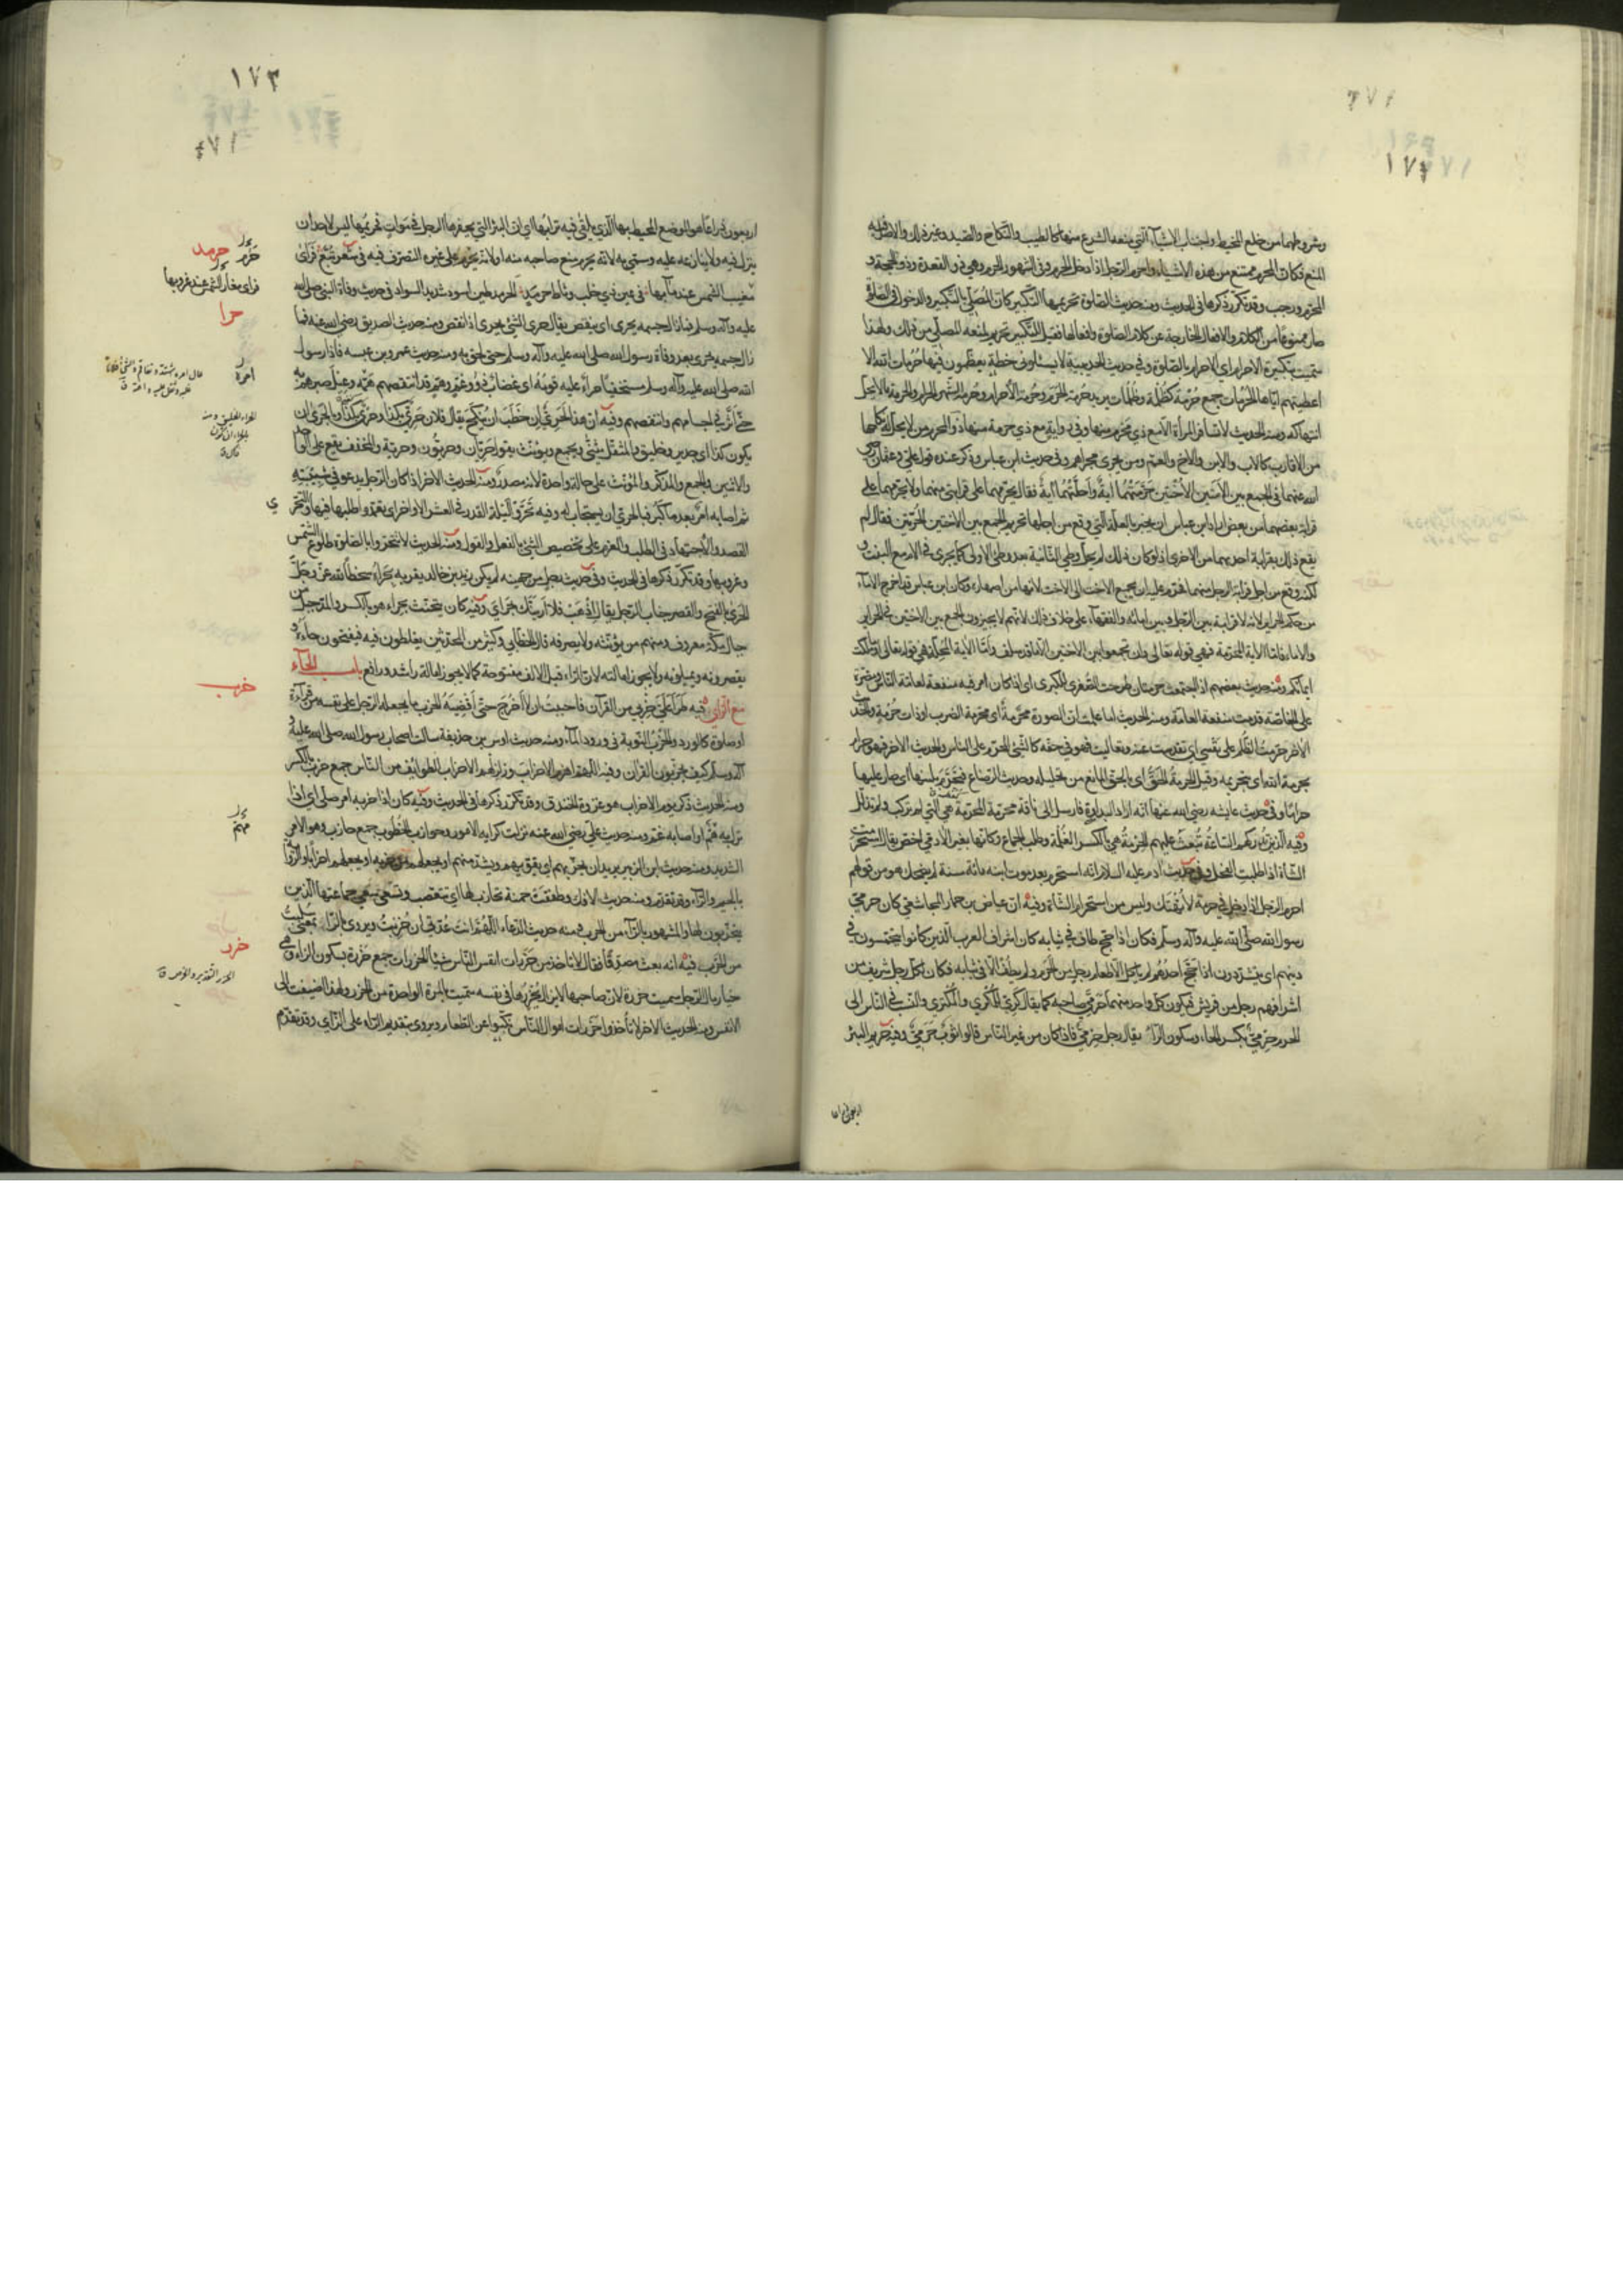 وشروطهما من خلع المخيط واجتناب الاشياء التي منعه الشرع منها كالطيب والنكاح والصيد وغير ذلك والاصل فيه
المنع فكان المحرم ممتنع من هذه الاشياء واحرم الرجل اذا دخل الحرم وفي الشهور الحرم وهي ذو القعدة وذو الحجة و
المحرم ورجب وقد تكرر ذكرها في الحديث ومنه حديث الصلوة تحريمها التكبير كان المصلي بالتكبير والدخول في الصلوة
صار ممنوعا من الكلام والافعال الخارجة عن كلام الصلوة وافعالها فقيل للتكبير تحريم لمنعه المصلي من ذلك ولهذا
سميت تكبيرة الاحرام اي الاحرام بالصلوة وفي حديث الحديبية لا يسئلوني خطة يعظمون فيها حرمات الله الا
اعطيتهم اياها الحرمات جمع حرمة كظلمة وظلمات يريد حرمة الحرم وحرمة الاحرام وحرمة الشهر الحرام والحرمة ما لا يحل
انتهاكه ومنه الحديث لا تسافر المرأة الا مع ذي محرم منها وفي رواية مع ذي حرمة منها ذو المحرم من لا يحل له نكاحها
من الاقارب كالاب والابن والاخ والعم ومن يجري مجراهم وفي حديث ابن عباس وذكر عنده قول علي وعثمان رضي
الله عنهما في الجمع بين الامتين الاختين حرمتهما اية واحلتهما اية فقال تحرمهن على قرابتي منهما ولا يحرمهما علي
قرابة بعضهما من بعض اراد ابن عباس ان يخبر بالعلة التي وقع من اجلها تحريم الجمع بين الاختين الحرتين فقال لم
يقع ذلك بقرابة احداهما من الاخرى اذ لو كان ذلك لم يحل وطي الثانية بعد وطي الاولى كما يجري في الام مع البنت و
لكنه وقع من اجل قرابة الرجل منهما فحرم عليه ان يجمع الاخت الى الاخت لانها من اصهاره وكان ابن عباس قد اخرج الاماء
من حكم الحراير لانه لا قرابة بين الرجل وبين امائه والفقهاء على خلاف ذلك لانهم لا يجيزون الجمع بين الاختين في الحراير
والاماء فاما الاية المحرمة فهي قوله تعالى وان تجمعوا بين الاختين الا ما قد سلف واما الاية المحلة فهي قوله تعالى او ما ملكت
ايمانكم ومنه حديث بعضهم اذا اجتمعت حرمتان طرحت الصغرى للكبرى اي اذا كان امر فيه منفعة لعامة الناس ومضرة
على الخاصة قدمت منفعة العامة ومنه الحديث اما علمت ان الصورة محرمة اي محرمة الضرب او ذات حرمة والحديث
الاخر حرمت الظلم على نفسي اي تقدست عنه وتعاليت فهو في حقه كالشئ المحرم على الناس والحديث الاخر فهو حرام
بحرمة الله اي بتحريمه وقيل الحرمة الحق اي بالحق المانع من تحليله وحديث الرضاع فتحرم بلبنها اي صار عليها
حراما وفي حديث عايشه رضي الله عنها انه اراد البداوة فارسل الى ناقة محرمة المحرمة هي التي لم تركب ولم تذلل
وفيه الذين تدركهم الساعة تبعث عليهم الحرمة هي بالكسر الغلمة وطلب الجماع وكانها بغير الادمي اخص يقال استحرمت
الشاة اذا طلبت الفحل وفي حديث ادم عليه السلام انه استحرم بعد موت ابنه مائة سنة لم يضحك هو من قولهم
احرم الرجل اذا دخل في حرمة لا تهتك وليس من استحرام الشاة وفيه ان عياض بن حمار المجاشعي كان حرمي
رسول الله صلى الله عليه وآله وسلم فكان اذا حج طاف في ثيابه كان اشراف العرب الذين كانوا يتحمسون في
دينهم اي يتشددون اذا حج احدهم لم ياكل الا طعام رجل من الحرم ولم يطف الا في ثيابه فكان لكل رجل شريف من
اشرافهم رجل من قريش فيكون كل واحد منهما حرمي صاحبه كما يقال كري للمكري والمكتري والنسب في الناس الى
الحرم حرمي بكسر الحاء وسكون الراء يقال رجل حرمي فاذا كان من غير الناس قالوا ثوب حرمي وفيه حريم البئر
اربعون ذراعا
١٧٣
اربعون ذراعا هو الموضع المحيط بها الذي يلقى فيه ترابها اي ان البئر التي يحفرها الرجل في موات فحريمها ليس لاحد ان
ينزل فيه ولا ينازعه عليه وسمي به لانه يحرم منع صاحبه منه او لانه يحرم على غيره التصرف فيه في شعر تبع فراى
مغيب الشمس عند مآبها في عين ذي خلب وثاط حرمد الحرمد طين اسود شديد السواد في حديث وفاة النبي صلى الله
عليه وآله وسلم فما زال جسمه يحري اي ينقص يقال حرى الشئ يحري اذا نقص ومنه حديث الصديق رضي الله عنه فما
زال جسمه يحري بعد وفاة رسول الله صلى الله عليه وآله وسلم حتى لحق به ومنه حديث عمرو بن عبسه فاذا رسول
الله صلى الله عليه وآله وسلم مستخفيا حراء عليه قومه اي غضاب ذوو غم وهم قد انتقصهم امره وعيل صبرهم به
حتى اثر في اجسامهم وانتقصهم وفيه ان هذا لحري ان خطب ان ينكح يقال فلان حري بكذا وحرى بكذا وبالحرى ان
يكون كذا اي جدير وخليق والمثقل يثنى ويجمع ويؤنث تقول حريان وحريون وحرية والمخفف يقع على الواحد
والاثنين والجمع والمذكر والمؤنث على حالة واحدة لانه مصدر ومنه الحديث الاخر اذا كان الرجل يدعو في شبيبته
ثم اصابه امر بعد ما كبر فبالحرى ان يستجاب له وفيه تحروا ليلة القدر في العشر الاواخر اي تعمدوا طلبها فيها والتحري
القصد والاجتهاد في الطلب والعزم على تخصيص الشئ بالفعل والقول ومنه الحديث لا تتحروا بالصلوة طلوع الشمس
وغروبها وقد تكرر ذكرها في الحديث وفي حديث رجل من جهينة لم يكن زيد بن خالد يقربه بحراه سخطا لله عز وجل
الحرى بالفتح والقصر جناب الرجل يقال اذهب فلا اريتك بحراي وفيه كان يتحنث بحراء هو بالكسر والمد جبل من
جبال مكة معروف ومنهم من يؤنثه ولا يصرفه قال الخطابي وكثير من المحدثين يغلطون فيه فيفتحون حاءه و
يقصرونه ويميلونه ولا يجوز امالته لان الراء قبل الالف مفتوحة كما لا يجوز امالة راشد ورافع باب الحاء
مع الزاي فيه طرأ علي حزبي من القرآن فاحببت ان لا اخرج حتى اقضيه الحزب ما يجعله الرجل على نفسه من قراءة
او صلوة كالورد والحزب النوبة في ورود الماء ومنه حديث اوس بن حذيفة سالت اصحاب رسول الله صلى الله عليه و
آله وسلم كيف تحزبون القرآن وفيه اللهم اهزم الاحزاب وزلزلهم الاحزاب الطوايف من الناس جمع حزب بالكسر
ومنه الحديث ذكر يوم الاحزاب هو غزوة الخندق وقد تكرر ذكرها في الحديث وفيه كان اذا حزبه امر صلى اي اذا
نزل به مهم او اصابه غم ومنه حديث علي رضي الله عنه نزلت كرايه الامور وحوازب الخطوب جمع حازب وهو الامر
الشديد ومنه حديث ابن الزبير يريد ان يحزبهم اي يقويهم ويشد منهم او يجعلهم من حزبه او يجعلهم احزابا والرواية
بالجيم والراء وقد تقدم ومنه حديث الافك وطفقت حمنة تحازب لها اي تتعصب وتسعى سعي جماعتها الذين
يتحزبون لها والمشهور بالراء من الحرب ومنه حديث الدعاء اللهم انت عدتي ان حزبت ويروى بالراء بمعنى سلبت
من الحرب فيه انه بعث مصدقا فقال لا تاخذ من حزرات انفس الناس شيئا الحزرات جمع حزرة بسكون الزاء وهي
خيار مال الرجل سميت حزرة لان صاحبها لا يزال يحزرها في نفسه سميت بالمرة الواحدة من الحزر ولهذا اضيفت الى
الانفس ومنه الحديث الاخر لا تأخذوا حزرات اموال الناس نكبوا عن الطعام ويروى بتقديم الراء على الزاي وقد تقدم
حرمد
فراى مغار الشمس عند غروبها
حرا
امره
حزب
مهم
حزر
الحزر التقدير والخرص ق